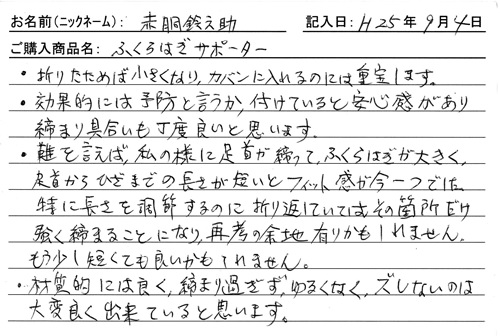 お名前(ニックネーム): 赤胴鈴之助 記入日: H25年9月4日
ご購入商品名: ふくらはぎサポーター
・折りたためば小さくなり、カバンに入れるのには重宝します。
・効果的には予防と言うか、付けていると安心感があり
締まり具合いも丁度良いと思います。
・難を言えば、私の様に足首が締って、ふくらはぎが大きく、
足首からひざまでの長さが短いとフィット感が今一つでした。
特に長さを調節するのに折り返していてはその箇所だけ
強く締まることになり、再考の余地有りかもしれません。
もう少し短くても良いかもしれません。
・材質的には良く、締まり過ぎず、ゆるくなく、ズレないのは
大変良く出来ていると思います。